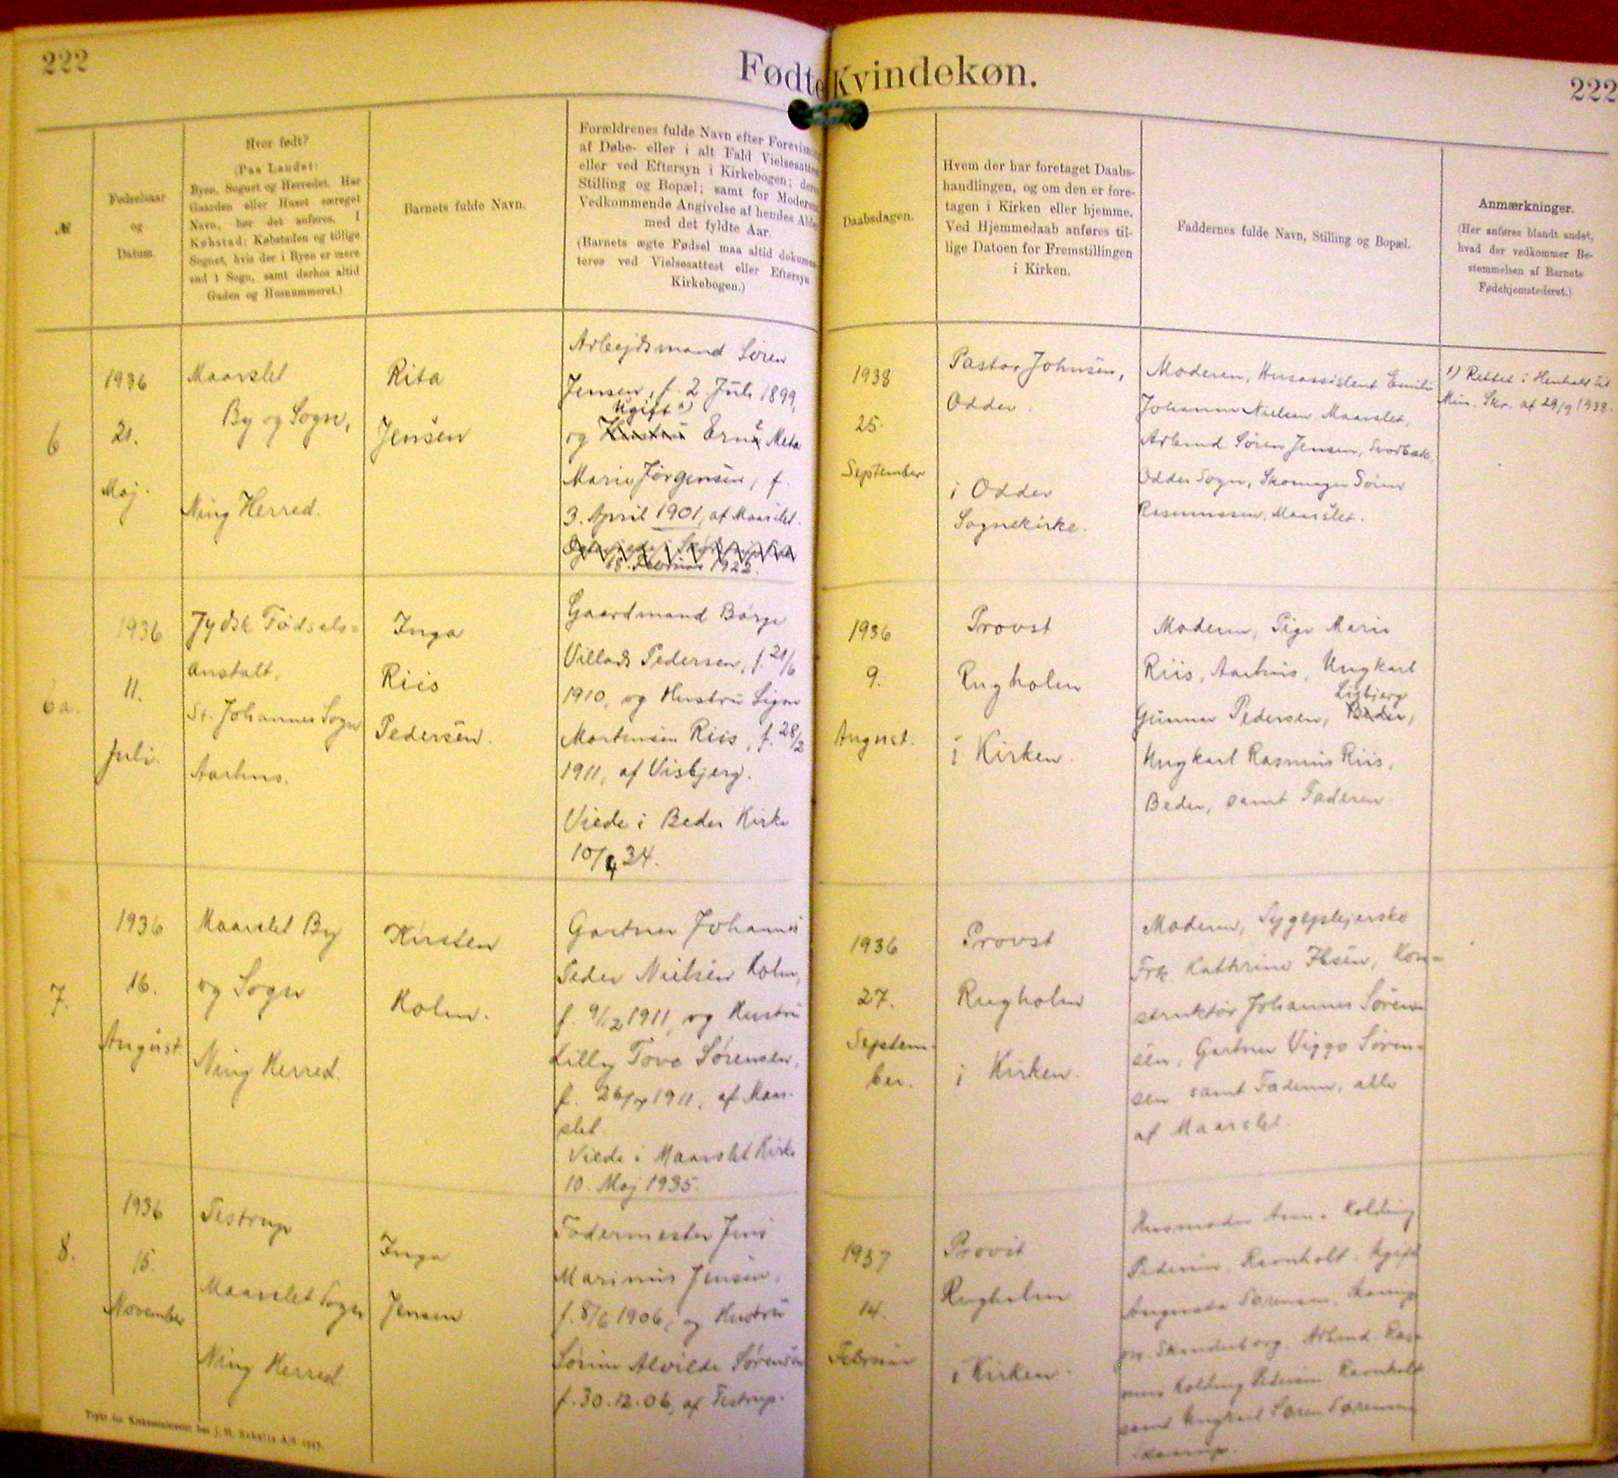 222
Fødte Kvindekøn.
222
№
Fødselsaar
og
Datum.
Hvor født?
(Paa Landet:
Byen, Sognet og Herredet. Har
Gaarden eller Huset særeget
Navn, bør det anføres. I
Købstad: Købstaden og tillige
Sognet, hvis der i Byen er mere
end 1 Sogn, samt derhos altid
Gaden og Husnummeret.)
Barnets fulde Navn.
Forældrenes fulde Navn efter Forevisning
af Døbe- eller i alt Fald Vielsesattest
eller ved Eftersyn i Kirkebogen; deres
Stilling og Bopæl; samt for Moderens
Vedkommende Angivelse af hendes Alder
med det fyldte Aar.
(Barnets ægte Fødsel maa altid dokumen-
teres ved Vielsesattest eller Eftersyn
Kirkebogen.)
Daabsdagen.
Hvem der har foretaget Daabs-
handlingen, og om den er fore-
tagen i Kirken eller hjemme.
Ved Hjemmedaab anføres til-
lige Datoen for Fremstillingen
i Kirken.
Faddernes fulde Navn, Stilling og Bopæl.
Anmærkninger.
(Her anføres blandt andet,
hvad der vedkommer Be-
stemmelsen af Barnets
Fødehjemstederet.)
6
1936
21.
Maj.
Maarslet
By og Sogn,
Ning Herred.
Rita
Jensen
Arbejdsmand Søren
Jensen, f. 2 Juli 1899,
Ugift 1)
og Hustru Erna Meta
Marie Jørgensen, f.
3. April 1901, af Maarslet.
18. Februar 1922.
1938
25.
September
Pastor Johnsen,
Odder.
i Odder
Sognekirke.
Moderen, Husassistent Emilie
Johanne Nielsen Maarslet,
Arbmd Søren Jensen, Svorbæk,
Odder Sogn, Skomager Søren
Rasmussen, Maarslet.
1) Rettet i Henhold til
Min. Skr. af 29/9 1938.
6a.
1936
11.
Juli.
Jydsk Fødsels-
anstalt,
St. Johannes Sogn
Aarhus.
Inga
Riis
Pedersen.
Gaardmand Børge
Villads Pedersen, f. 21/6
1910, og Hustru Signe
Mortensen Riis, f. 28/2
1911, af Visbjerg.
Viede i Beder Kirke
10/4 34.
1936
9.
August.
Provst
Rugholm
i Kirken.
Moderen, Pige Marie
Riis, Aarhus, Ungkarl
Lisbjerg
Gunnar Pedersen, Beder,
Ungkarl Rasmus Riis,
Beder, samt Faderen.
7.
1936
16.
August.
Maarslet By
og Sogn
Ning Herred.
Kirsten
Holm.
Gartner Johannes
Peder Nielsen Holm,
f. 9/12 1911, og Hustru
Lilly Tove Sørensen,
f. 26/7 1911, af Maar-
slet.
Viede i Maarslet Kirke
10. Maj 1935.
1936
27.
Septem-
ber.
Provst
Rugholm
i Kirken.
Moderen, Sygeplejerske
Frk. Kathrine Ibsen, Kon-
struktør Johannes Søren-
sen, Gartner Viggo Søren-
sen samt Faderen, alle
af Maarslet.
8.
1936
15.
November
Testrup
Maarslet Sogn
Ning Herred
Inga
Jensen
Fodermester Jens
Marinus Jensen,
f. 8/6 1906, og Hustru
Sørine Alvilde Sørensen
f. 30.12.06, af Testrup.
1937
14.
Februar
Provst
Rugholm
i Kirken.
Husmoder Anna Kolding
Pedersen, Ravnholt. Ugift
Augusta Sørensen, Skanderup
pr. Skanderborg. Arbmd. Ras-
mus Kolding Pedersen Ravnholt
samt Ungkarl Søren Sørensen
Trykt for Kirkeministeriet hos J. H. Schultz A/S. 1917.